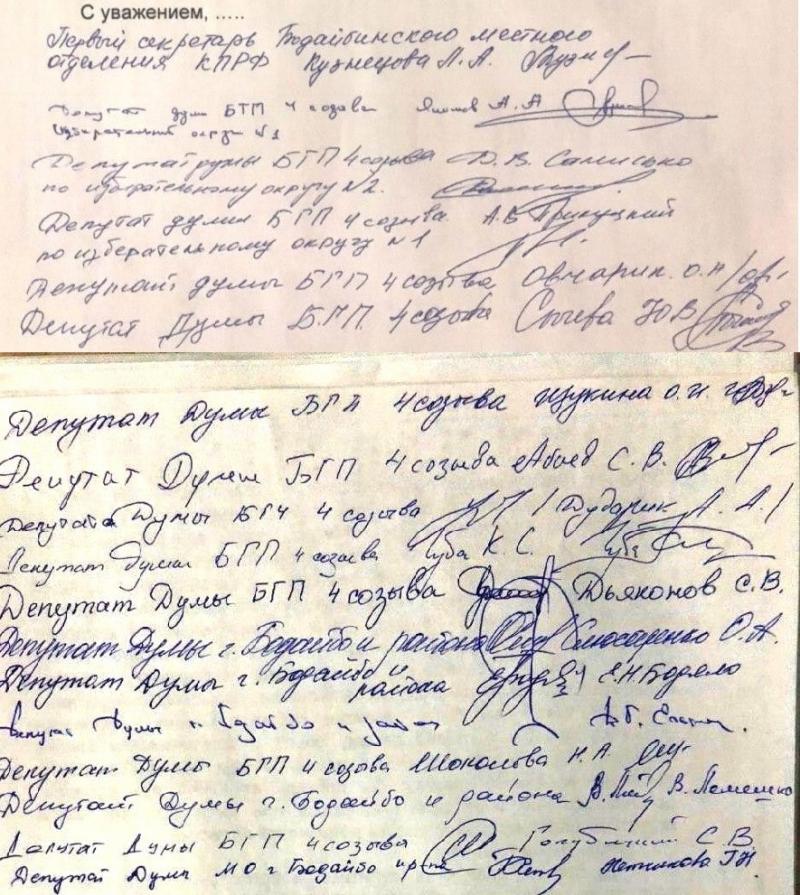 С уважением, .....
Первый секретарь Бодайбинского местного
отделения КПРФ Кузнецова Л.А.
Депутат думы БГП 4 созыва А.А
избирательный округ №1
Депутат думы БГП 4 созыва Д.В. Самисько
по избирательному округу №2.
Депутат думы БГП 4 созыва А.В Прикуцкий
по изберательному округу №1
Депутат думы БГП 4 созыва Овчарик О.Н
Депутат Думы Б.Г.П. 4 созыва Сычева Ю В
Депутат Думы БГП 4 созыва Щукина О.И.
Депутат Думы БГП 4 созыва Абаев С. В.
Депутат Думы 4 созыва / Дударик А. А /
Депутат Думы БГП 4 созыва Чуба К. С.
Депутат Думы БГП 4 созыва Дьяконов С.В.
Депутат Думы г. Бодайбо и района О.А.
Депутат Думы г. Бодайбо и
района Е.Н Борело
Депутат Думы г. Бодайбо и района
Депутат Думы БГП 4 созова Шоколова Н.А.
Депутат Думы г. Бодайбо и района В. Лемешко
Депутат Думы БГП 4 созыва С В
Депутат Думы МО г Бодайбо и р-на Г.Н.